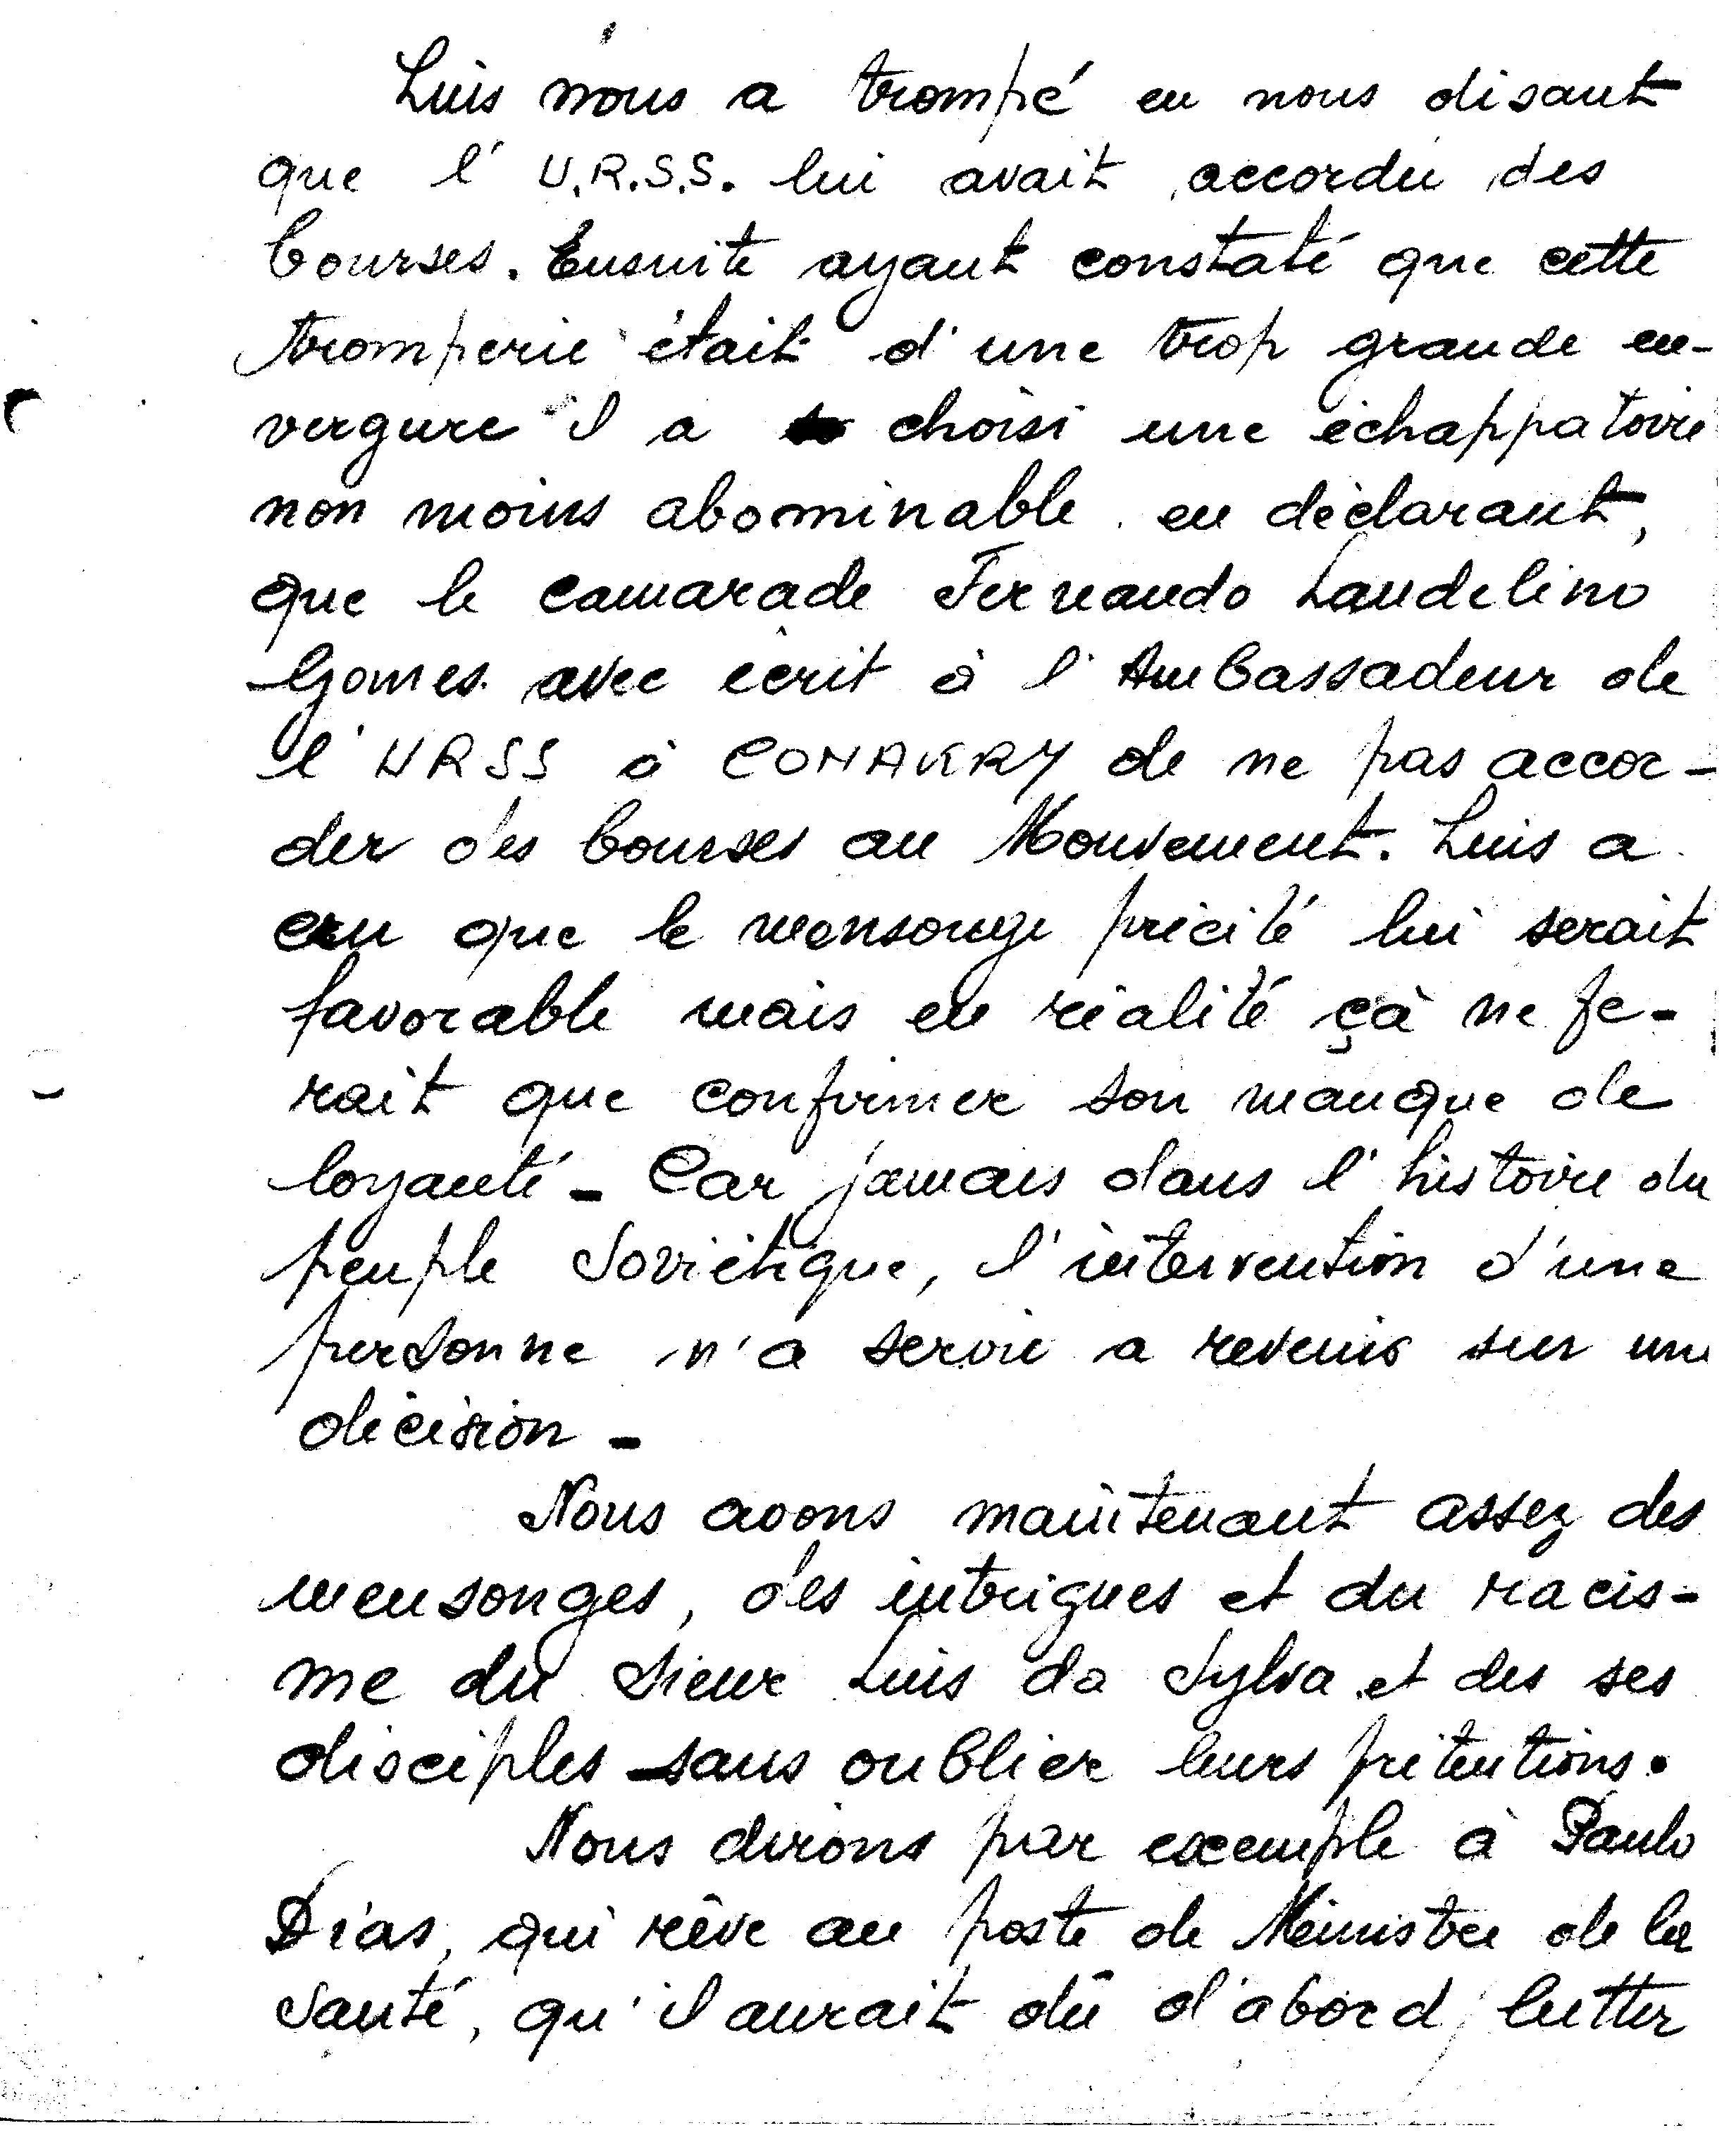 Luis nous a trompé en nous disant
que l'U.R.S.S. lui avait accordé des
bourses. Ensuite ayant constaté que cette
tromperie était d'une trop grande en-
vergure il a choisi une échappatoire
non moins abominable en déclarant,
que le camarade Fernando Laudelino
Gomes avec écrit à l'Ambassadeur de
l'URSS à CONAKRY de ne pas accor-
der des bourses au Mouvement. Luis a
cru que le mensonge précité lui serait
favorable mais en réalité çà ne fe-
rait que confirmer son manque de
loyauté - Car jamais dans l'histoire du
peuple Soviétique, l'intervention d'une
personne n'a servie a revenir sur une
décision -
Nous avons maintenant assez des
mensonges, des intrigues et du racis-
me du Sieur Luis da Sylva et des ses
disciples sans oublier leurs prétentions.
Nous dirons par exemple à Paulo
Dias, qui rêve au poste de Ministre de la
Santé, qu'il aurait dû d'abord lutter